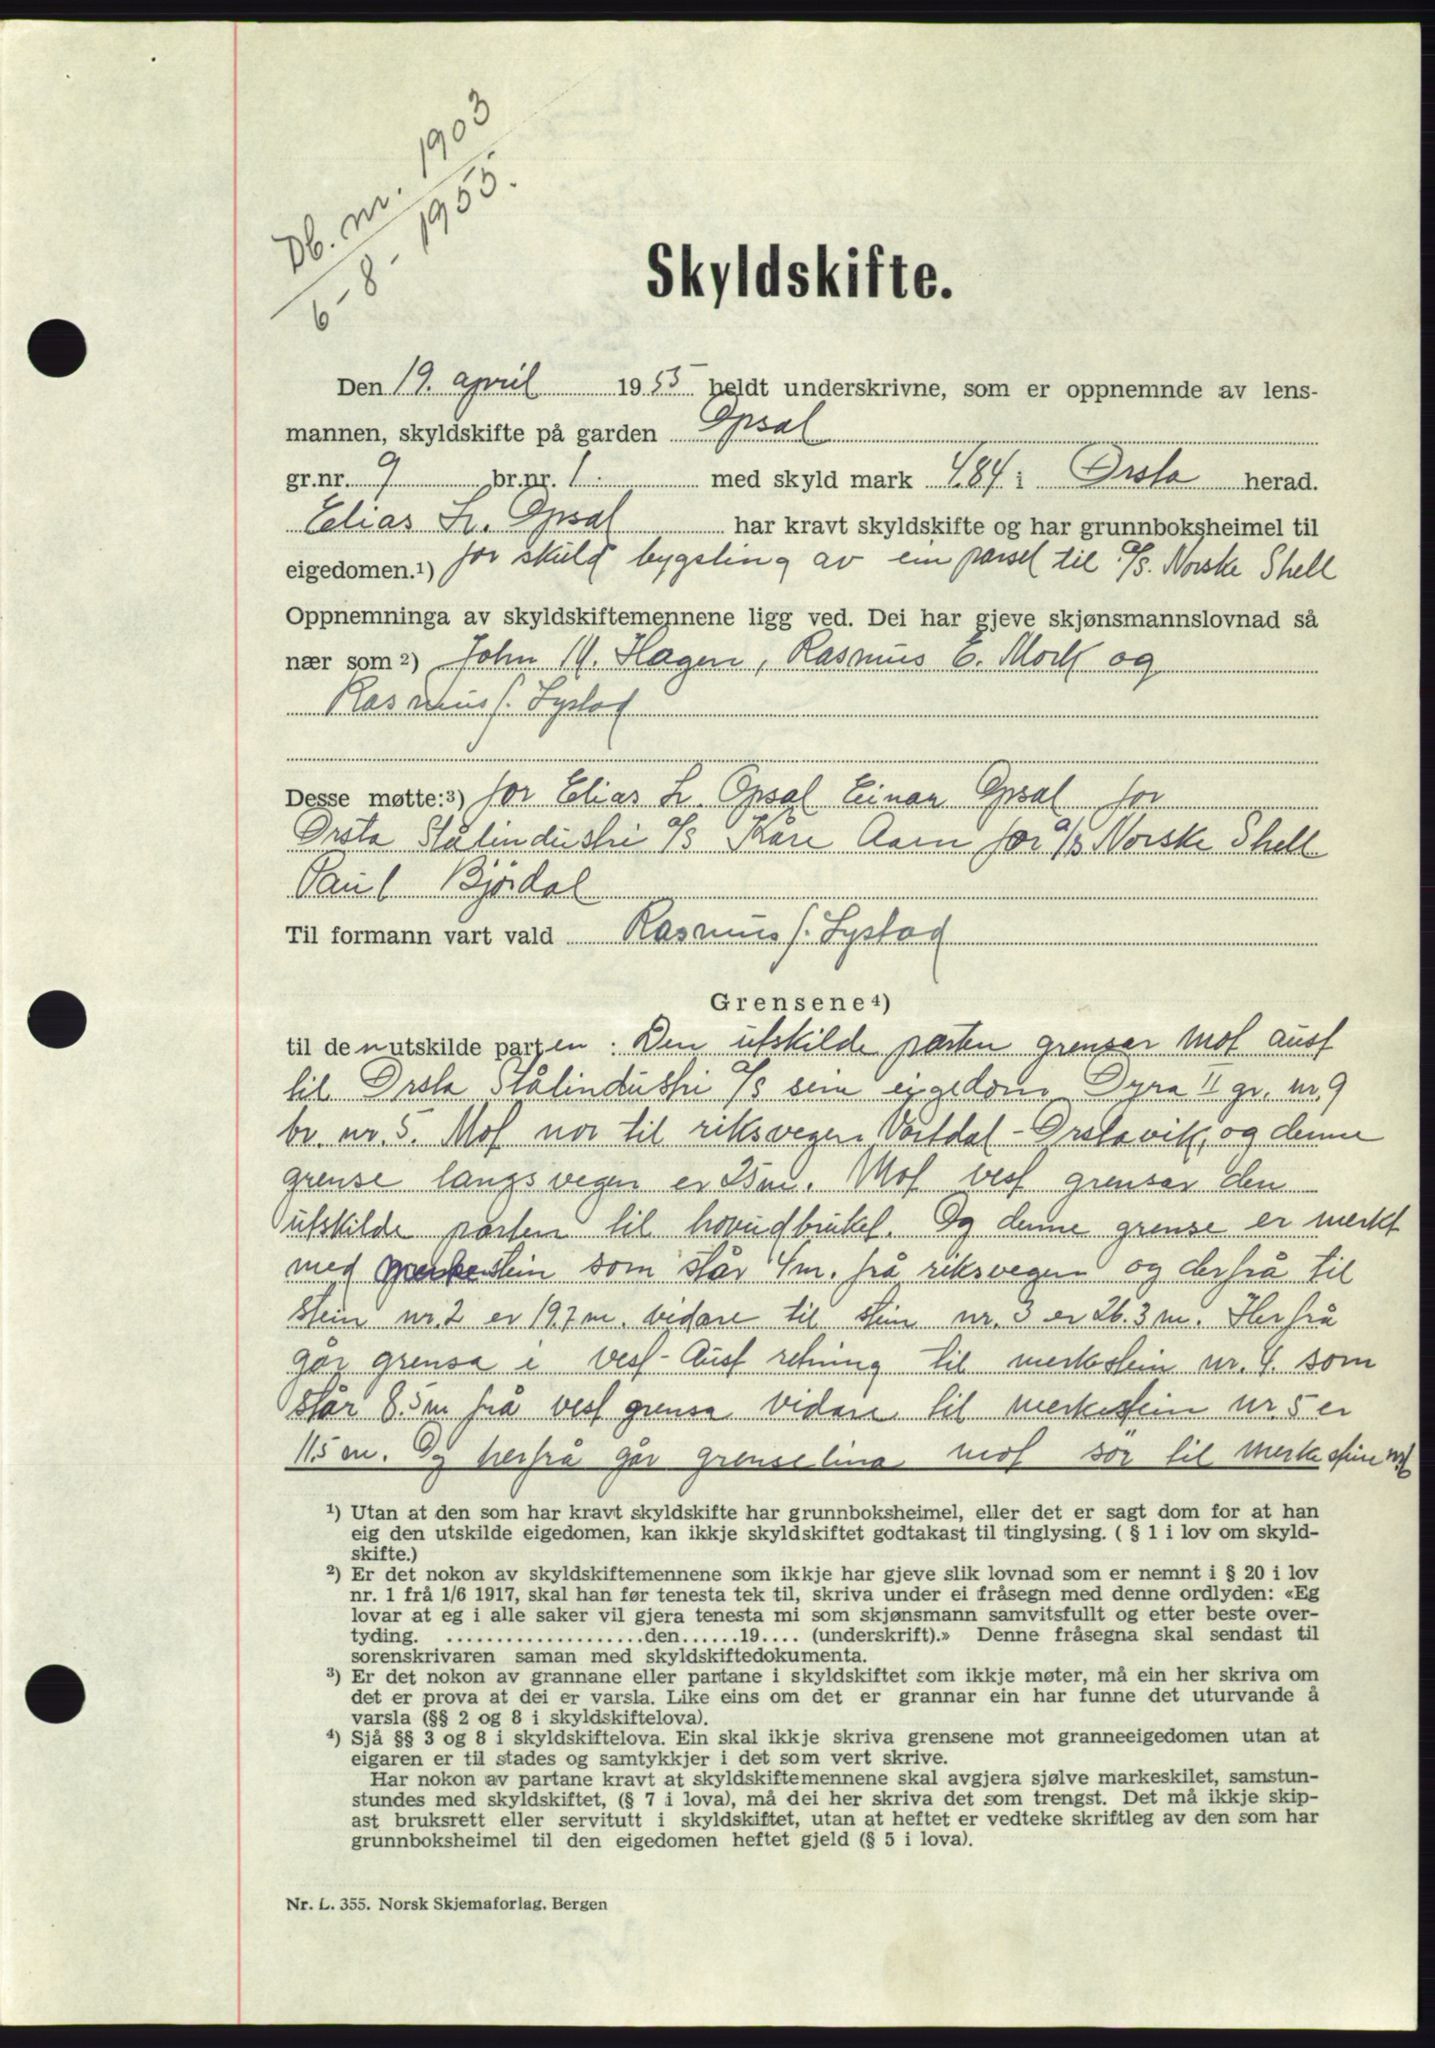 Db. nr. 1903
6-8-1955.
Skyldskifte.
Den 19. april 1955 heldt underskrivne, som er oppnemnde av lens-
mannen, skyldskifte på garden Opsal
gr.nr. 9 br.nr. 1. med skyld mark 4.84 i Ørsta herad.
Elias L. Opsal har kravt skyldskifte og har grunnboksheimel til
eigedomen.¹) for skuld bygsling av ein parsel til A/S. Norske Shell
Oppnemninga av skyldskiftemennene ligg ved. Dei har gjeve skjønsmannslovnad så
nær som ²) John M. Hagen, Rasmus E. Mork og
Rasmus S. Lystad
Desse møtte:³) for Elias L. Opsal Einar Opsal for
Ørsta Stålindustri A/S Kåre Aam for A/S Norske Shell
Paul Bjørdal
Til formann vart vald Rasmus S. Lystad
Grensene⁴)
til den utskilde parten: Den utskilde parten grensar mot aust
til Ørsta Stålindustri A/S sin eigedom Dyra II gr. nr. 9
br. nr. 5. Mot nor til riksvegen Vartdal - Ørstavik, og denne
grense langs vegen er 25 m. Mot vest grensar den
utskilde parten til hovudbruket. Og denne grense er merkt
med merkestein som står 4 m. frå riksvegen og derfrå til
stein nr. 2 er 19.7 m. vidare til stein nr. 3 er 26.3 m. Herfrå
går grensa i vest-Aust retning til merkestein nr. 4. som
står 8.5 m frå vest grensa vidare til merkestein nr. 5 er
11.5 m. Og herfrå går grenselina mot sör til merkestein nr. 6
¹) Utan at den som har kravt skyldskifte har grunnboksheimel, eller det er sagt dom for at han
eig den utskilde eigedomen, kan ikkje skyldskiftet godtakast til tinglysing. ( § 1 i lov om skyld-
skifte.)
²) Er det nokon av skyldskiftemennene som ikkje har gjeve slik lovnad som er nemnt i § 20 i lov
nr. 1 frå 1/6 1917, skal han før tenesta tek til, skriva under ei fråsegn med denne ordlyden: «Eg
lovar at eg i alle saker vil gjera tenesta mi som skjønsmann samvitsfullt og etter beste over-
tyding. ......................den......19.... (underskrift).» Denne fråsegna skal sendast til
sorenskrivaren saman med skyldskiftedokumenta.
³) Er det nokon av grannane eller partane i skyldskiftet som ikkje møter, må ein her skriva om
det er prova at dei er varsla. Like eins om det er grannar ein har funne det uturvande å
varsla (§§ 2 og 8 i skyldskiftelova).
⁴) Sjå §§ 3 og 8 i skyldskiftelova. Ein skal ikkje skriva grensene mot granneeigedomen utan at
eigaren er til stades og samtykkjer i det som vert skrive.
Har nokon av partane kravt at skyldskiftemennene skal avgjera sjølve markeskilet, samstun-
stundes med skyldskiftet, (§ 7 i lova), må dei her skriva det som trengst. Det må ikkje skip-
ast bruksrett eller servitutt i skyldskiftet, utan at heftet er vedteke skriftleg av den som har
grunnboksheimel til den eigedomen heftet gjeld (§ 5 i lova).
Nr. L. 355. Norsk Skjemaforlag, Bergen